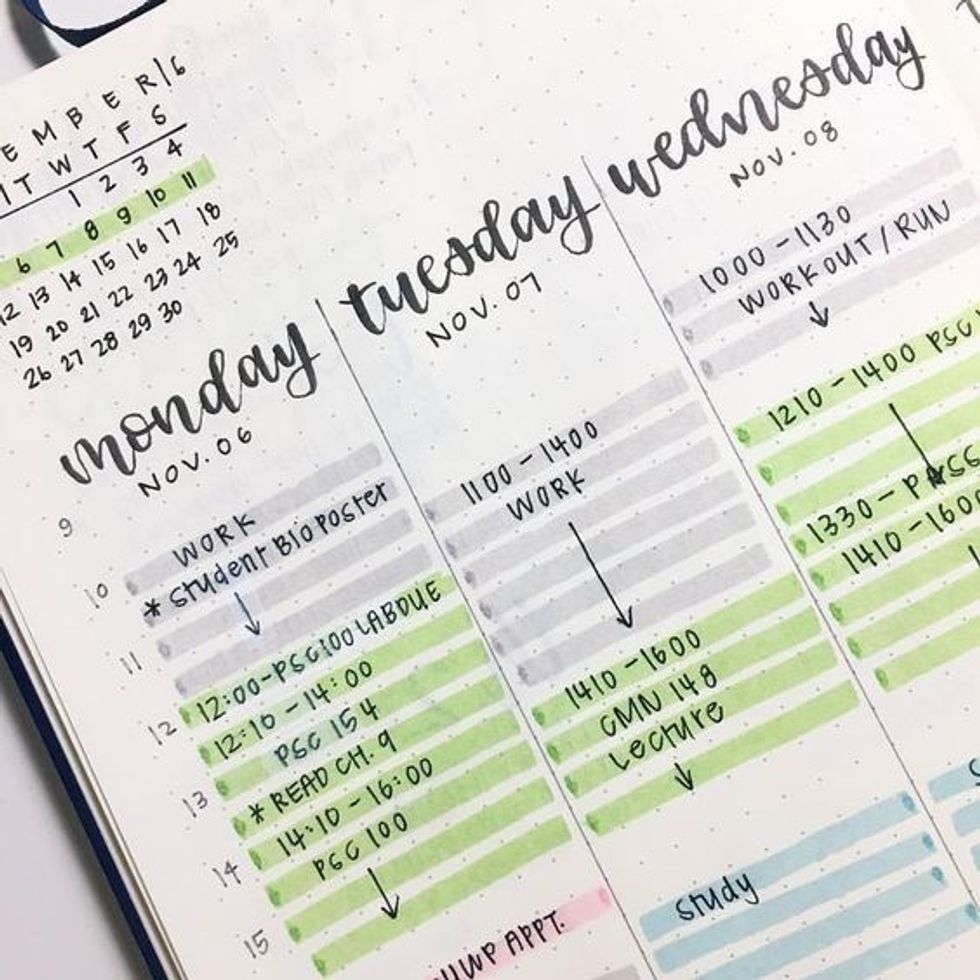 EMBER/6
T W T F S
1 2 3 4
6 7 8 9 10 11
12 13 14 15 16 17 18
19 20 21 22 23 24 25
26 27 28 29 30
monday
NOV. 06
9
10
11
12
13
14
15
WORK
* Student BIO POSTER
12:00-PSC100 LAB DUE
12:10 - 14:00
PSC 154
* READ CH. 9
14:10 - 16:00
PSC 100
APPT.
tuesday
NOV. 07
1100 - 1400
WORK
1410 - 1600
CMN 148
Lecture
Study
wednesday
NOV. 08
1000 - 1130
WORKOUT / RUN
1210 - 1400 PSC
1330 -
1410 - 1600